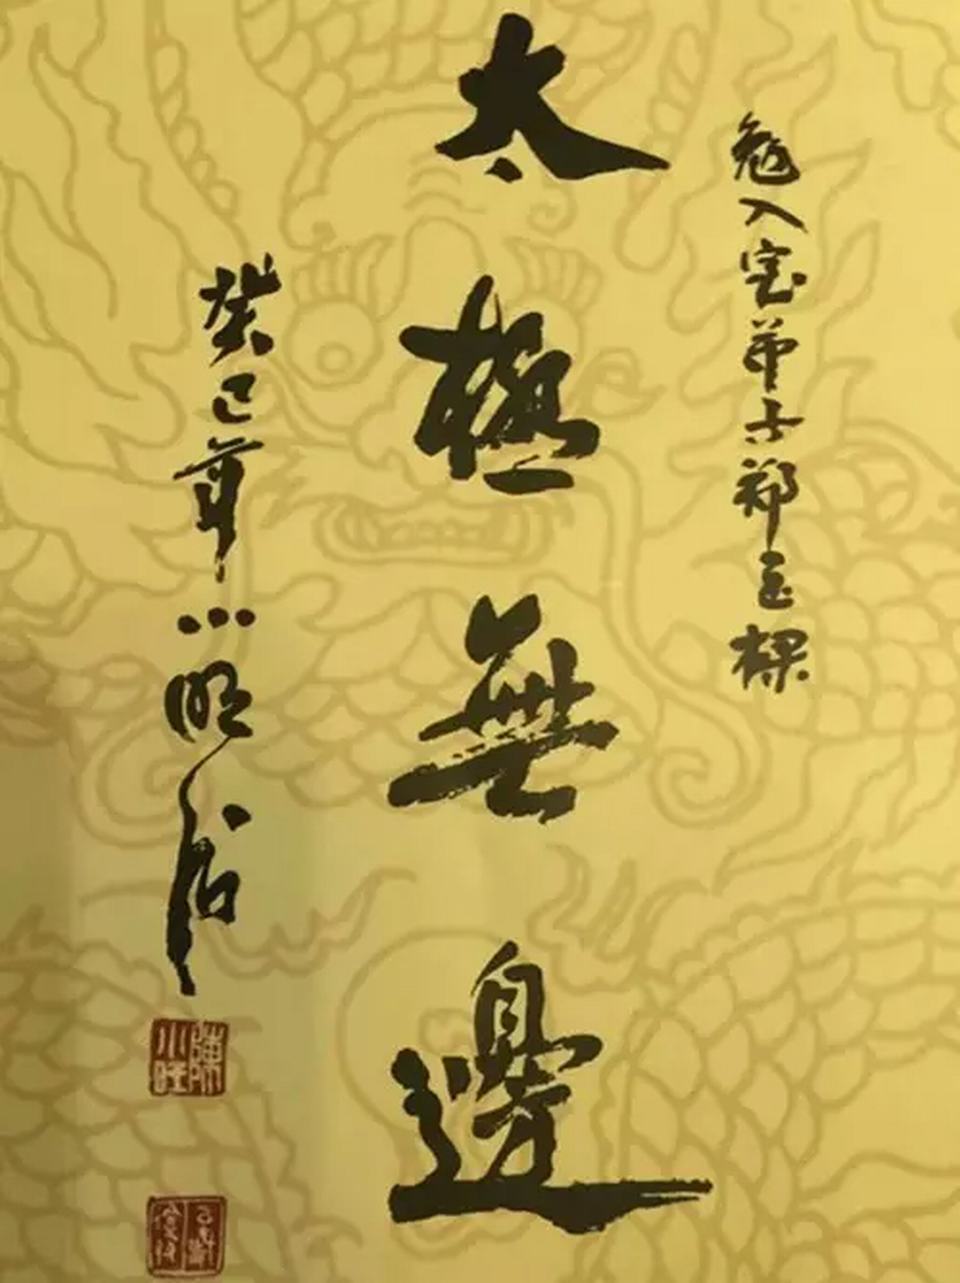 勉入室弟子郑
太極無邊
癸巳年小旺
陳小旺